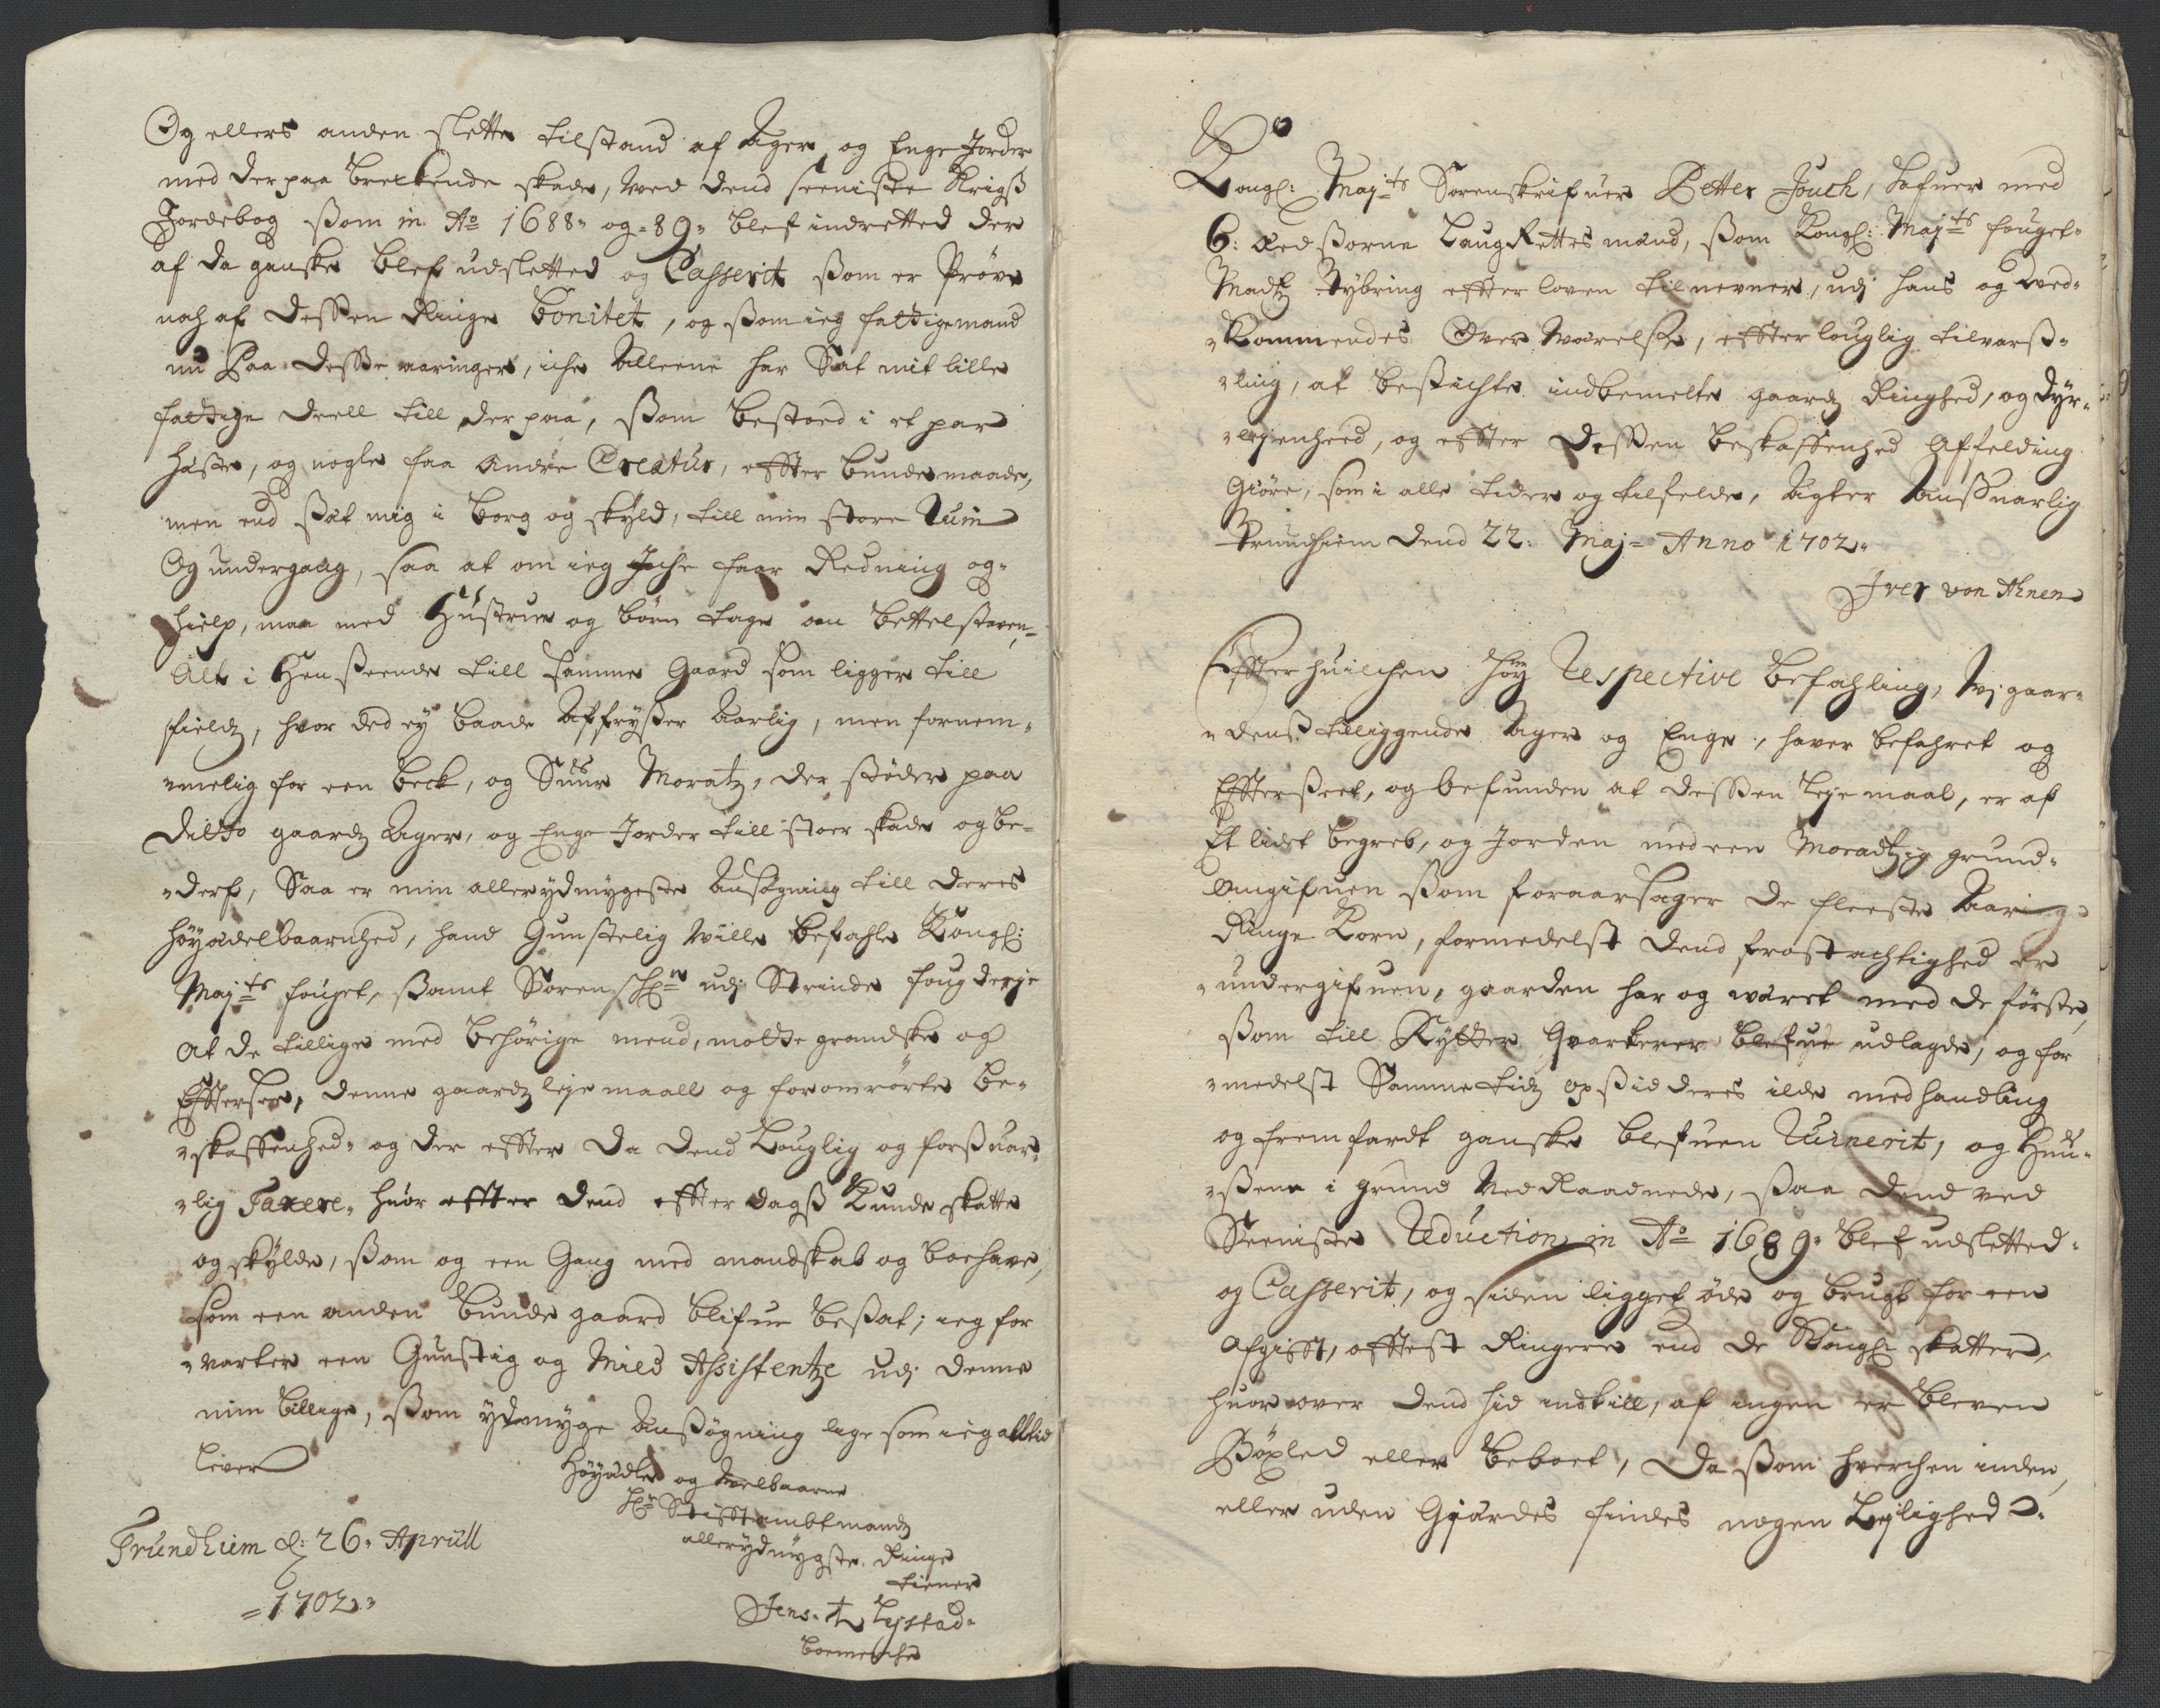 Og ellers anden slette tilstand af Ager, og Enge Jorder
med der paa breckende skade, ved dend seeniste Krigß
Jordebog ßom in Ao 1688 og 89 blef indretted der
af da ganske blef udsletted og Casserit ßom er Prøve
noch af deßen Ringe bonitet, og ßom ieg fattige mand
nu Paa deße aaringer, iche Alleene har Sat mit lille
fattige deell till der paa, ßom bestoed i et par
Hæste, og nogle faa Andre Creatur, efter bunde maade,
men end ßat mig i borg og skyld, till min store Ruin
Og undergang, saa at om ieg Iche faar Redning og
hielp, maa med Hustrue og børn tage om bettelstaven,
Alt i Henseende till samme Gaard som ligger till
fields, hvor ded ey baade Affryßer Aarlig, men fornem-
melig for een beck, og Suur Moratz, der støder paa
Ditto gaardz Ager, og Enge Jorder till stoer skade og be-
derf, Saa er min allerydmygeste Ansøgning till deres
Høyædelbaarnhed, hand Gunstelig ville befahle Kongl:
Maj:ts fouget, ßamt Sorenschr: udj Strinde fougderje
At de tillige med behørige mend, motte grandske og
Efftersee, denne gaardz leje maall og foromrørte be-
skaffenhed og der effter da dend Louglig og forßvar-
lig Taxere, huor effter dend effter dagß Kunde skatte
og skylde, ßom og een Gang med mandskab og boehave,
som een anden bunde gaard blifue beßat; ieg for
varter een Gunstig og Mild Assistentze udj denne
min billige, ßom ydmyge Anßøgning lige som ieg alltid
lever
Høyædle og Velbaarne
Hr Stifftambtmandz
allerydmygste Ringe
tiener
Trundhiem d: 26 Aprill
1702
Jens Lystad
boemerche
Kongl: Maj:ts Sorenskrifuer Petter Jouch, hafuer med
6: Æedßorne Laug Rettes mænd, ßom Kongl: Maj:ts fouget
Madtz Nybring efter loven tilnevner, udj hans og ved-
kommendes Over værelse, effter louglig tilvarß-
ling, at beßichte indbemelte gaardz Ringhed, og dyr-
lejenheed, og effter deßen beskaffenhed Affelding
Giøre, som i alle tider og tilfelde, Agter Anßvarlig
Trundhiem dend 22: Maj Anno 1702
Iver von Ahnen
Effter huilchen høy Respective befahling, Vi gaar-
denß tilliggende Ager og Enge, haver befahret og
Effterßeet, og befunden at deßen leje maal, er af
Et lidet begreb, og Jorden med een Moradtzig grund
Omgifuen ßom foraarsager de fleeste Aaring
Ringe Korn, formedelst dend frostachtighed er
undergifuen, gaarden har og været med de første,
ßom till Rytter Qvarterer blefue udlagde, og for
medelst Samme tidz opsidderes ilde medhandling
og fremfardt ganske blefuen Ruinerit, og Huu-
ßene i grund Ned Raadnede, ßaa dend ved
Seeniste Reduction in Ao 1689 blef udsletted
og Casserit, og siden ligget øde og brugt for een
Afgifft, offtest Ringere end de Kongl: skatter,
huorover dend hid indtill, af ingen er bleven
Bøxled eller beboet, da ßom hverchen inden
eller uden Giærdes findes nogen Lejlighed